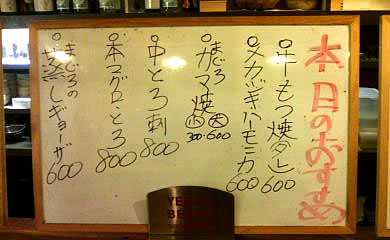 本日のおすすめ
牛もつ焼
600
メカジキハーモニカ
600
まぐろ
カマ焼
小 大
300・600
中とろ刺
800
本マグロとろ
800
まぐろの
蒸しギョーザ
600
YEBISU
BE